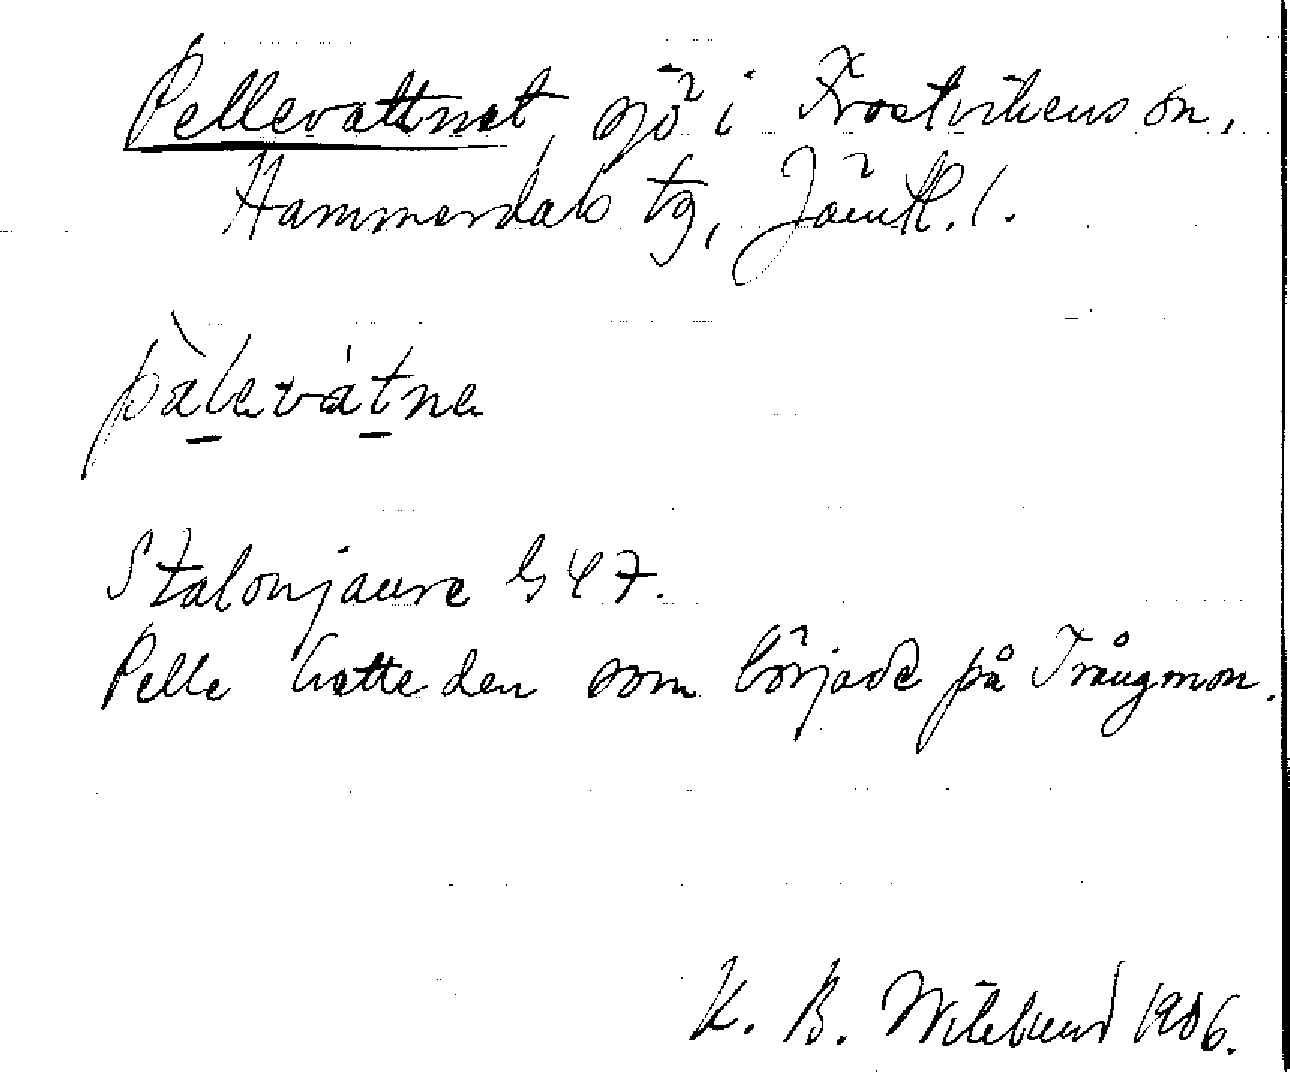 Pellevattnet, sjö i Frostvikens sn,
Hammerdals tg, Jämtl. l.
pàlevátne
Stalonjaure G 47.
Pelle hette den som började på Trångmon.
K. B. Wiklund 1906.